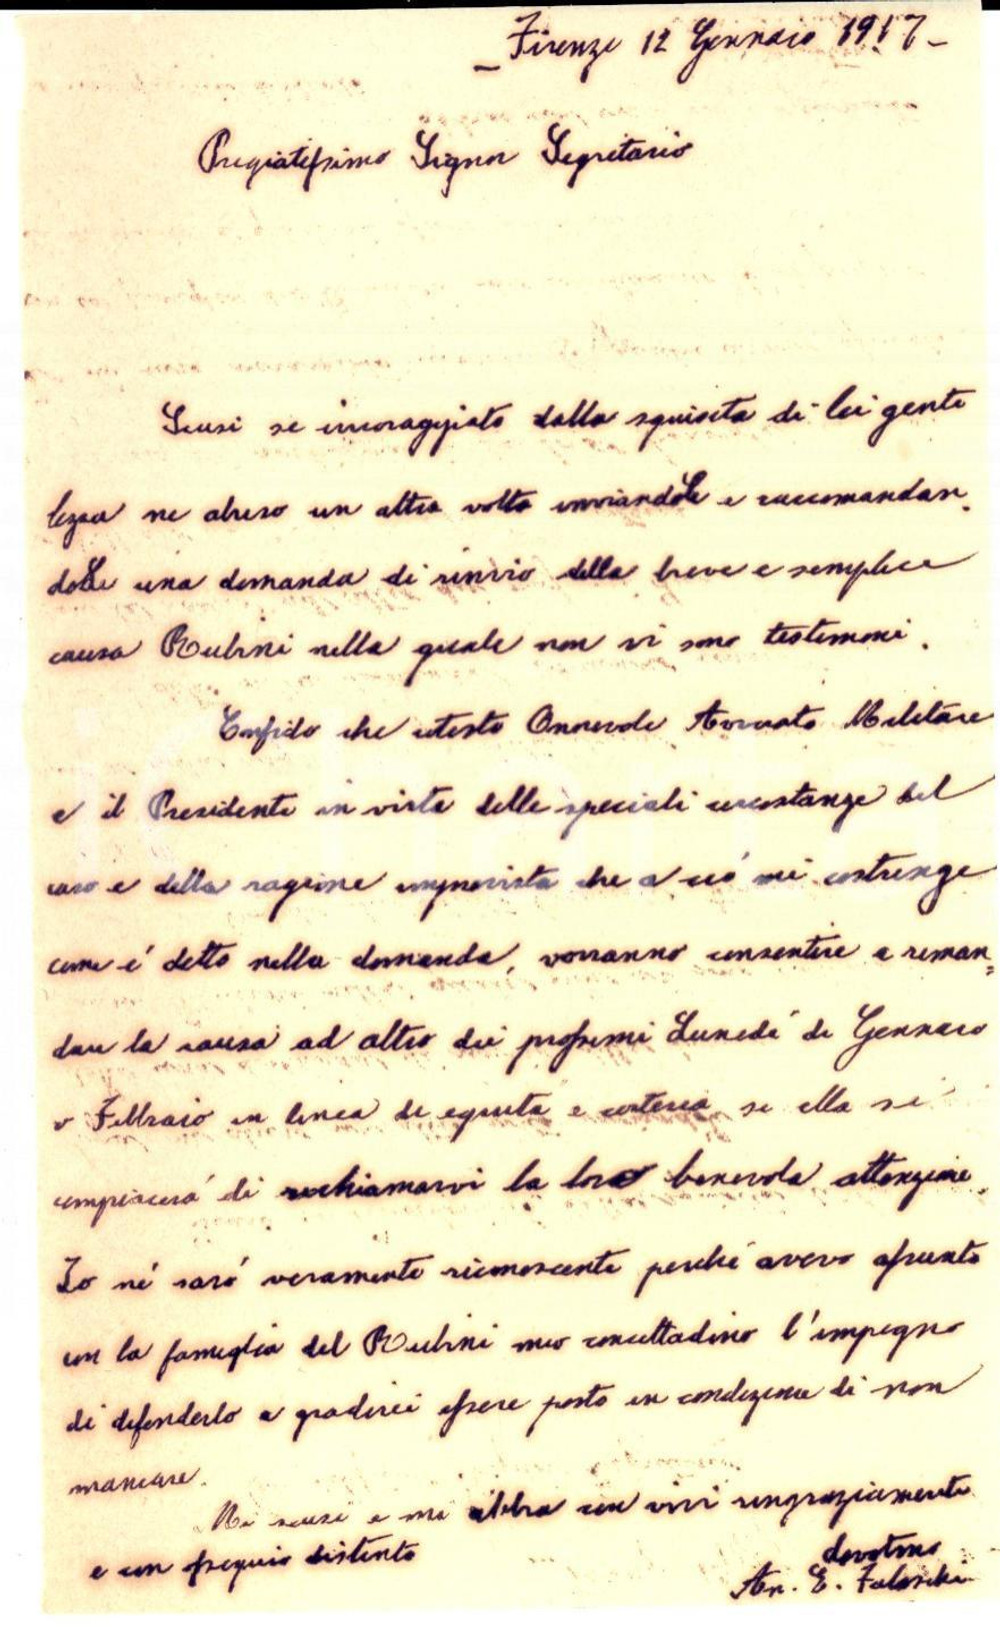 Firenze 12 Gennaio 1917 -
Pregiatissimo Signor Segretario
Scusi se incoraggiato dalla squisita di lei genti
lezza ne abuso un altra volta inviandoLe e raccomandan
doLe una domanda di rinvio della breve e semplice
causa Rubini nella quale non vi sono testimoni.
Confido che cotesto Onorevole Avvocato Militare
e il Presidente in vista delle speciali circostanze del
caso e della ragione improvvista che a ciò mi costringe
come é detto nella domanda, vorranno consentire a riman=
dare la causa ad altro dei prossimi Lunedì di Gennaio
o Febbraio in linea di equità e cortesia se ella si
compiacerà di richiamarvi la loro benevola attenzione.
Io né saró veramente riconoscente perché avevo assunto
con la famiglia del Rubini mio concittadino l'impegno
di difenderlo e gradirei essere posto in condizione di non
mancare.
Mi scusi e mi abbia con vivi ringraziamenti
e con ossequio distinto
devotmo
Av. E.